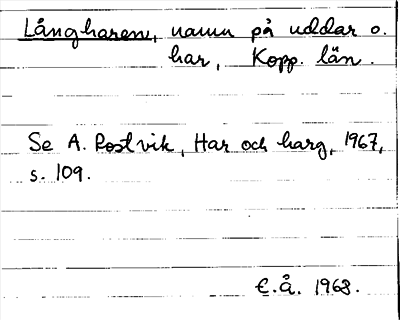 Långharen, namn på uddar o.
har, Kopp. län.
Se A. Rostvik, Har och harg, 1967,
s. 109.
E.Å. 1968.